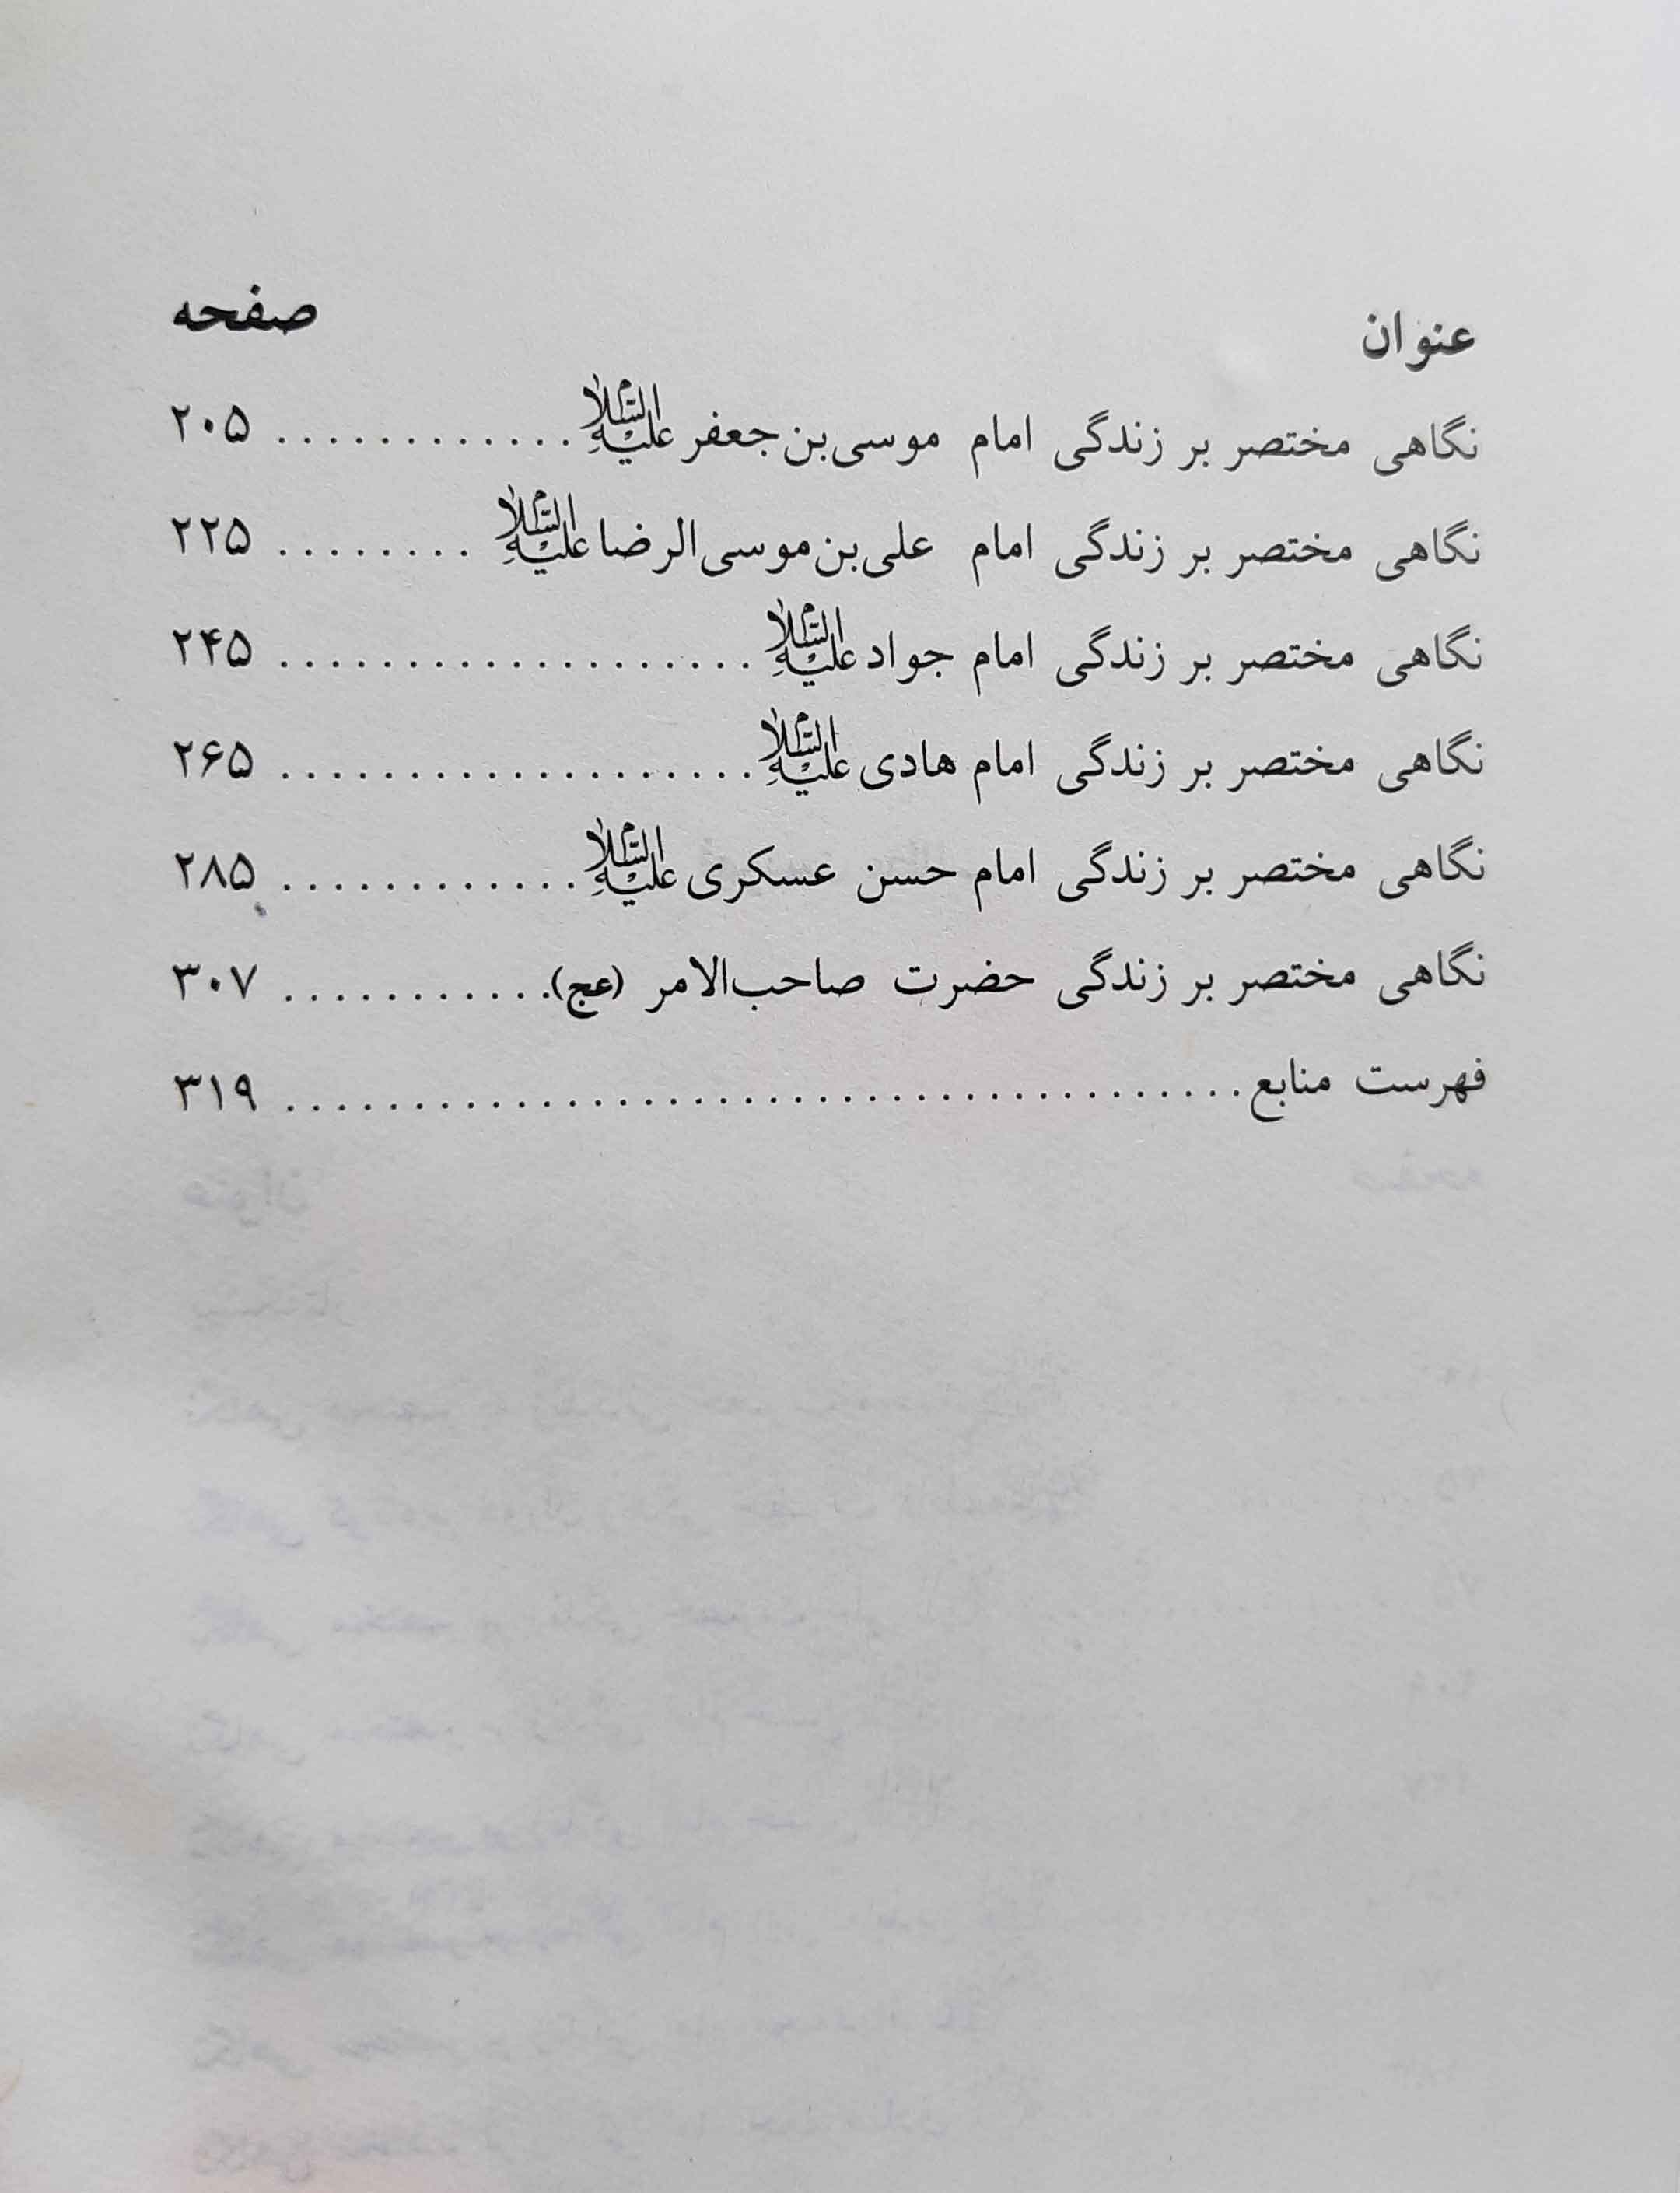 عنوان صفحه
نگاهی مختصر بر زندگی امام موسی‌بن‌جعفر علیه‌السلام ............ ۲۰۵
نگاهی مختصر بر زندگی امام علی‌بن‌موسی‌الرضا علیه‌السلام ........ ۲۲۵
نگاهی مختصر بر زندگی امام جواد علیه‌السلام ................... ۲۴۵
نگاهی مختصر بر زندگی امام هادی علیه‌السلام ................... ۲۶۵
نگاهی مختصر بر زندگی امام حسن عسکری علیه‌السلام ............ ۲۸۵
نگاهی مختصر بر زندگی حضرت صاحب‌الامر (عج) ............ ۳۰۷
فهرست منابع ...................................... ۳۱۹